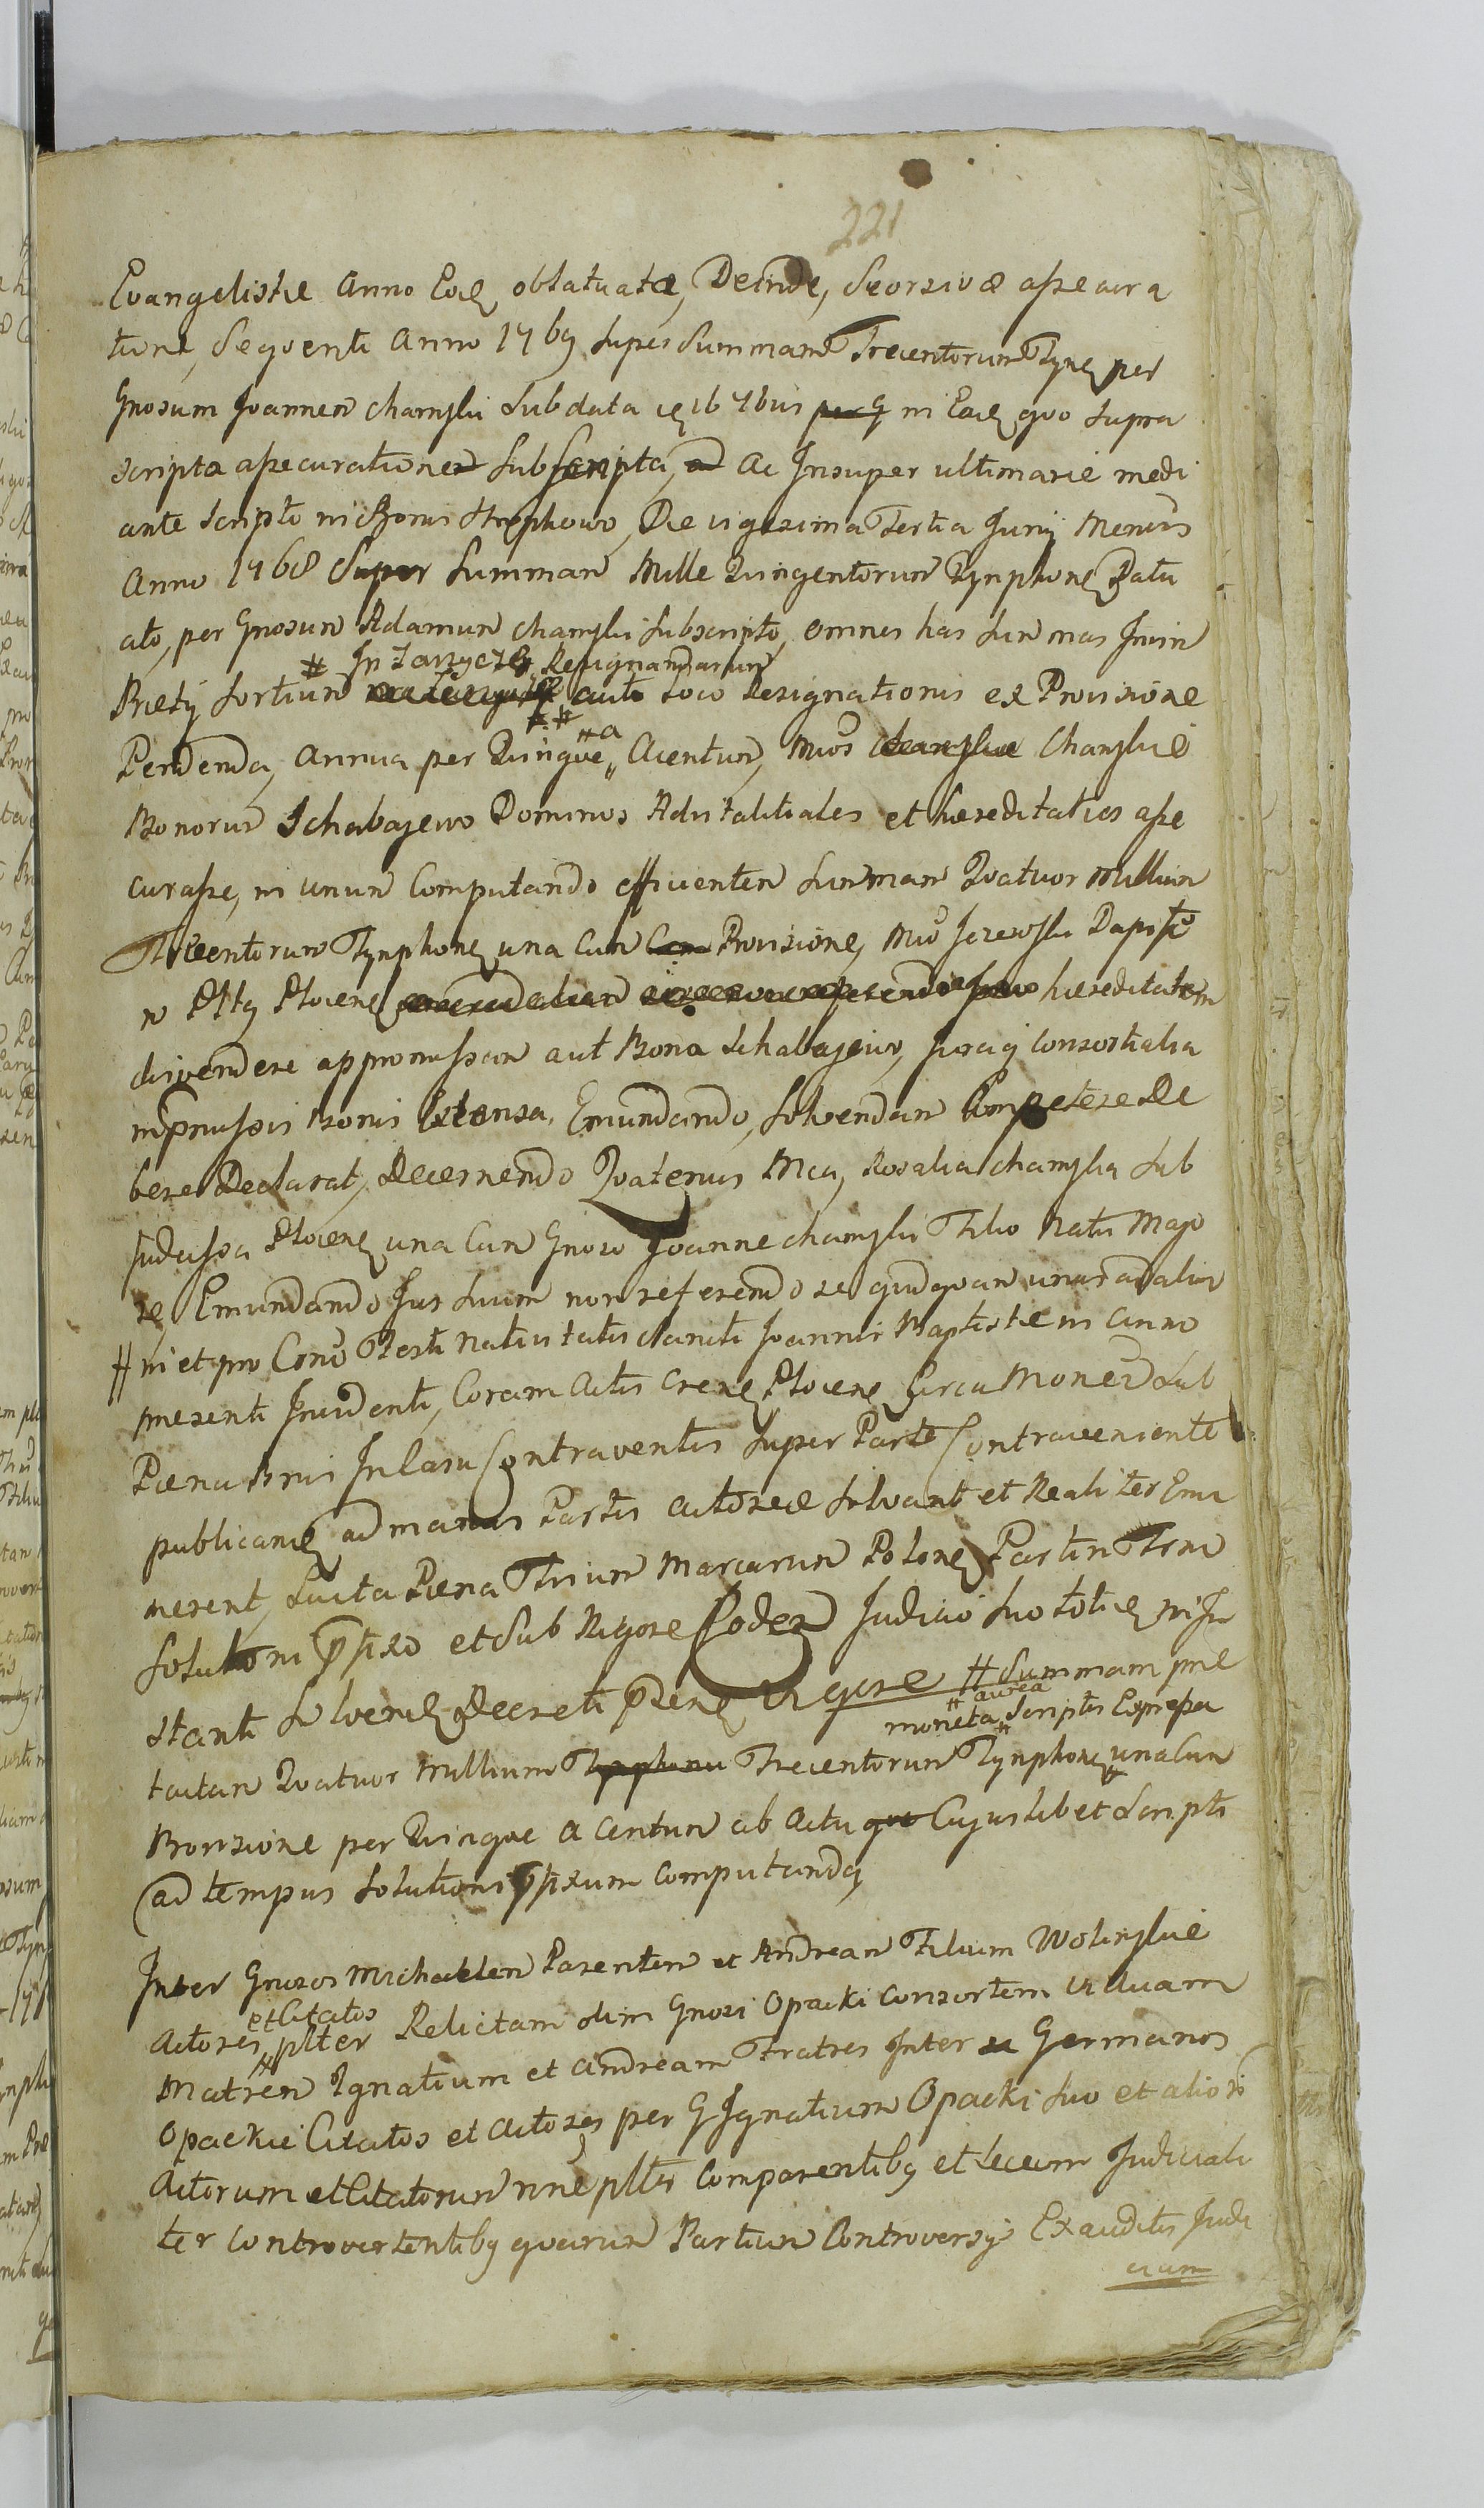 221
Evangelistæ Anno Eoq oblatuatæ, Deinde, Seorsivæ assecura
tione, Sequenti Anno 1769 super Summam Trecentorum Tynq per
Gnosum Joannem Chamski Subdata ıq 16 7bris per G in Eaq quo supra
scripta assecurationem Subscripta, ad ac Insuper ultimarie medi
ante scripto in Bonis Strzphowo, Die vigesima Tertia Junij Mensis
Anno 1768 Super Summam Mille Quingentorum Tynphonq Datu
ato, per Gnosum Adamum Chamski subscripto, omnes has summas Invim
# In Zarzycze Resignandarum
Præty sortium aut loco Resignationis ex Provisione
Pendenda, annua per Quinque #a Acentum, Mıos Chamskie Chamskie
Bonorum Schabajewo Dominos Advitalitiales et hæreditarios asse
curasse, in unum Computando efficientem summam Quatuor Millium
Trecentorum Tynphonq una cum Cum Provisione, Mıo Jezewski Dapife
o Pttq Plocenq hæreditatem
divendere appromissam aut Bona Schabajewo, juraq consortialia
inpræmissis Bonis Extensa, Emundando, solvendam Competere De
bere Declarat, Decernendo Quatenus Mca, Rosalia Chamska Sub
Judicissa Plocenq una cum Gnoso Joanne Chamski Filio Natu Majo
re, Emundando Jus suum non referendo se quidquam unus ad alium
# in et pro Crno Festi Nativitatis Sancti Joannis Baptistæ in anno
præsenti Incidenti, Coram Actis Crenq Plocenq Circa Moned Sub
Pæna Bnis In Casu Contraventis super Parte Contraveniente
publicandq ad manus Partis actoreæ solvant et Realiter Enu
merent, sucta Pæna Trium Marcarum Polonq Partem Trm
Solutioni ppixo et Sub Rigore Eodem Judicio suo totieq in In
stanti Solvendq Decreti pszenq Vigore # Summam præ
moneta # aurea Scriptis Expressa
tactam Quatuor Millium Tynphonu Trecentorum Tynphonq una cum
Provisione per Quinque a Centum ab Actu que Cujuslibet Scripti
ad tempus solutioni ppixum computanda
Inter Gnosos Michaelem Parentem et Andream Filium Wolinskie
et Citatos
Actores # plter Relictam olim Gnosi Opacki Consortem Viduam
Matrem Ignatium et Andream Fratres Inter se Germanos
Opackie Citatos et Actores per G Ignatium Opacki suo et alioro
Actorum et Citatorum nne pltis Comparentibq et secum Judiciali
ter controvertentibq quarum Partium Controversijs Exauditis Judi
cium